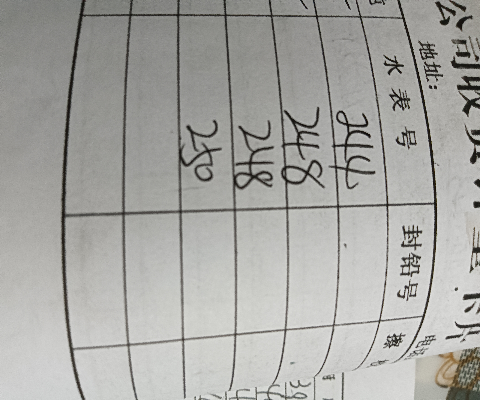 公司收费计量卡片
地址：
水表号 封铅号
244
248
248
250